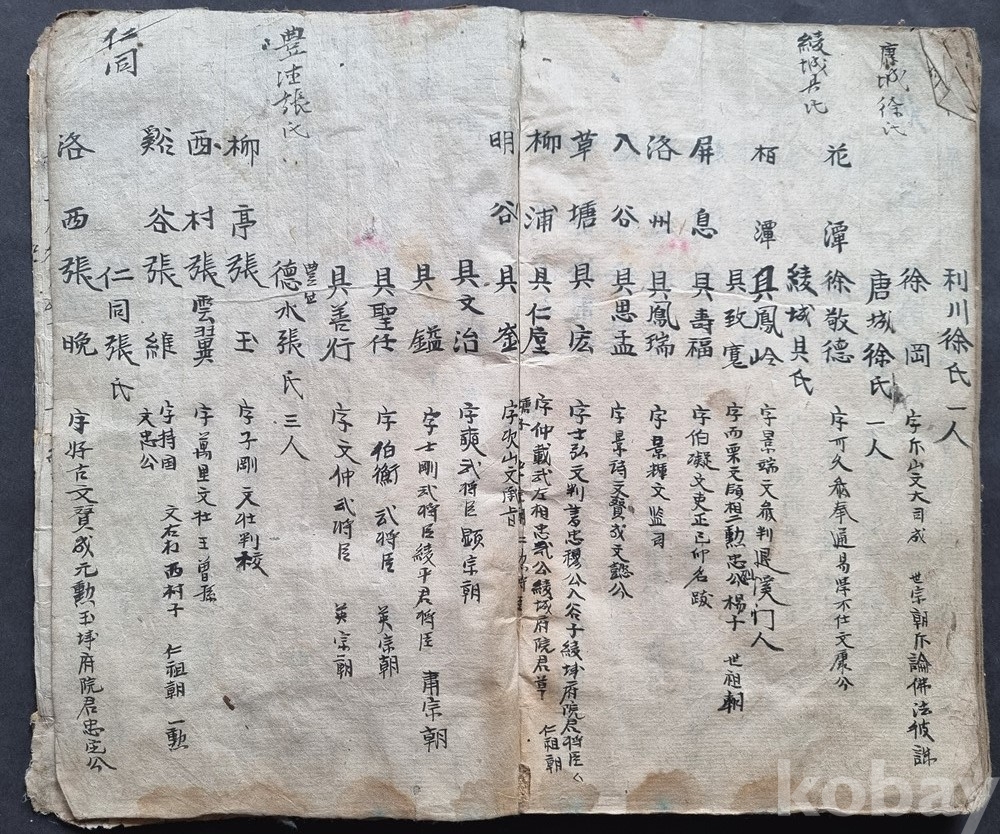 唐城徐氏
綾城具氏
利川徐氏 一人
徐岡 字 山文大司成 世宗朝 論佛法被誅
唐城徐氏 一人
花潭 徐敬德 字可久 奉 通易學不仕文康公
綾城具氏
栢潭 具鳳岭 字景瑞文 判退溪門人
具致寬 字而栗文領相 勳忠 公楊子 世祖朝
屏息 具壽福 字伯凝文吏正己卯名
洛州 具鳳瑞 字景輝文監司
八谷 具思孟 字景時文贊成文懿公
草塘 具宏 字士弘 判 忠穆公八谷子綾城府院君將臣
柳浦 具仁垕 字仲載武左相忠 公綾城府院君草塘子 仁祖朝
明谷 具崟 字次山文承旨
具文治 字奭武將臣 顯宗朝
具鎰 字士剛武將臣綾平君將臣 肅宗朝
具聖任 字伯衡 武將臣 英宗朝
具善行 字文仲武將臣 英宗朝
豊 張氏
德水張氏 三人
柳亭 張玉 字子剛文壯判校
西村 張雲翼 字萬里文壯玉曾孫
谿谷 張維 字持國 文右相西村子 仁祖朝 一勳 文忠公
仁同
仁同張氏
洛西 張晚 字好古文贊成元勳玉城府院君忠定公
kobay